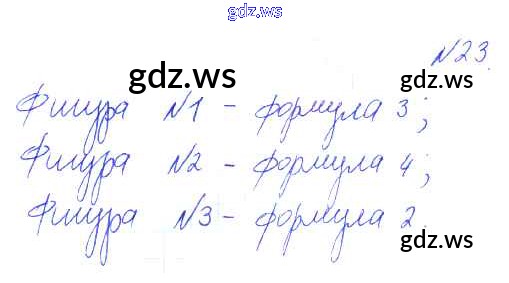 gdz.ws
№23.
gdz.ws
gdz.ws
Фигура №1 - формула 3;
Фигура №2 - формула 4;
Фигура №3 - формула 2.
gdz.ws